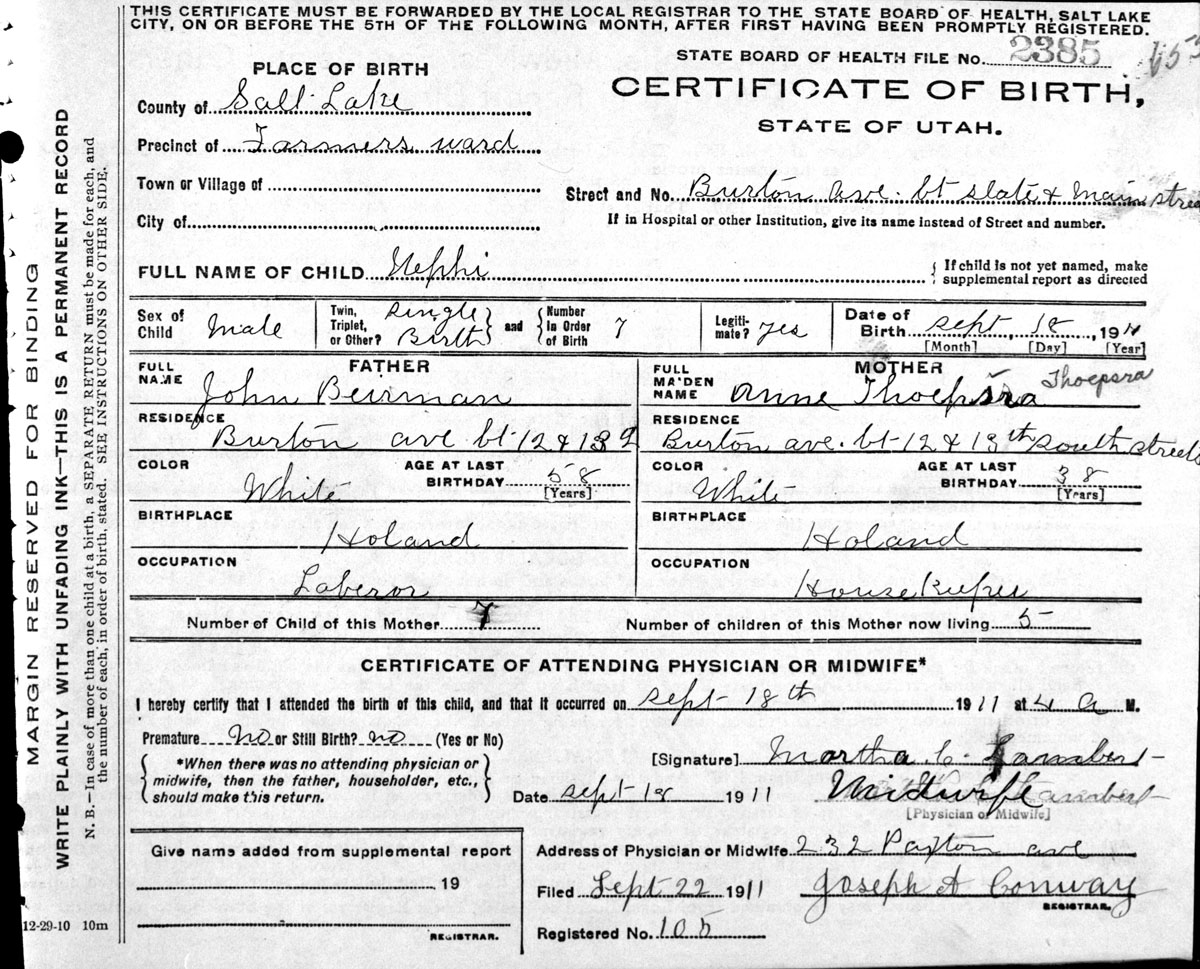 THIS CERTIFICATE MUST BE FORWARDED BY THE LOCAL REGISTRAR TO THE STATE BOARD OF HEALTH, SALT LAKE
CITY, ON OR BEFORE THE 5TH OF THE FOLLOWING MONTH, AFTER FIRST HAVING BEEN PROMPTLY REGISTERED.
MARGIN RESERVED FOR BINDING
WRITE PLAINLY WITH UNFADING INK—THIS IS A PERMANENT RECORD
N. B.—In case of more than one child at a birth, a SEPARATE RETURN must be made for each, and
the number of each, in order of birth, stated. SEE INSTRUCTIONS ON OTHER SIDE.
STATE BOARD OF HEALTH FILE No. 2385
CERTIFICATE OF BIRTH,
STATE OF UTAH.
PLACE OF BIRTH
County of Salt Lake
Precinct of Farmers ward
Town or Village of
City of
Street and No. Burton ave. bt state & main street
If in Hospital or other Institution, give its name instead of Street and number.
FULL NAME OF CHILD Nephi
If child is not yet named, make
supplemental report as directed
Sex of Child Male
Twin, Triplet, or Other? Single Birth
and Number in Order of Birth 7
Legitimate? Yes
Date of Birth sept 18, 1911
[Month] [Day] [Year]
FATHER
FULL NAME John Beirman
RESIDENCE Burton ave bt 12 & 13
COLOR White
AGE AT LAST BIRTHDAY 58 [Years]
BIRTHPLACE Holand
OCCUPATION Laberor
MOTHER
FULL MAIDEN NAME Anne Thoepsra Thoepsra
RESIDENCE Burton ave. bt 12 & 13th south streets
COLOR White
AGE AT LAST BIRTHDAY 38 [Years]
BIRTHPLACE Holand
OCCUPATION House Keeper
Number of Child of this Mother 7
Number of children of this Mother now living 5
CERTIFICATE OF ATTENDING PHYSICIAN OR MIDWIFE*
I hereby certify that I attended the birth of this child, and that it occurred on sept 18th 1911 at 4 a M.
Premature No or Still Birth? no (Yes or No)
*When there was no attending physician or
midwife, then the father, householder, etc.,
should make this return.
[Signature] Martha C. Lambert
Date sept 18 1911
Midwife
[Physician or Midwife]
Give name added from supplemental report
19
REGISTRAR.
Address of Physician or Midwife 232 Paxton ave
Filed Sept 22 1911 Joseph A Conway
REGISTRAR.
Registered No. 105
12-29-10 10m